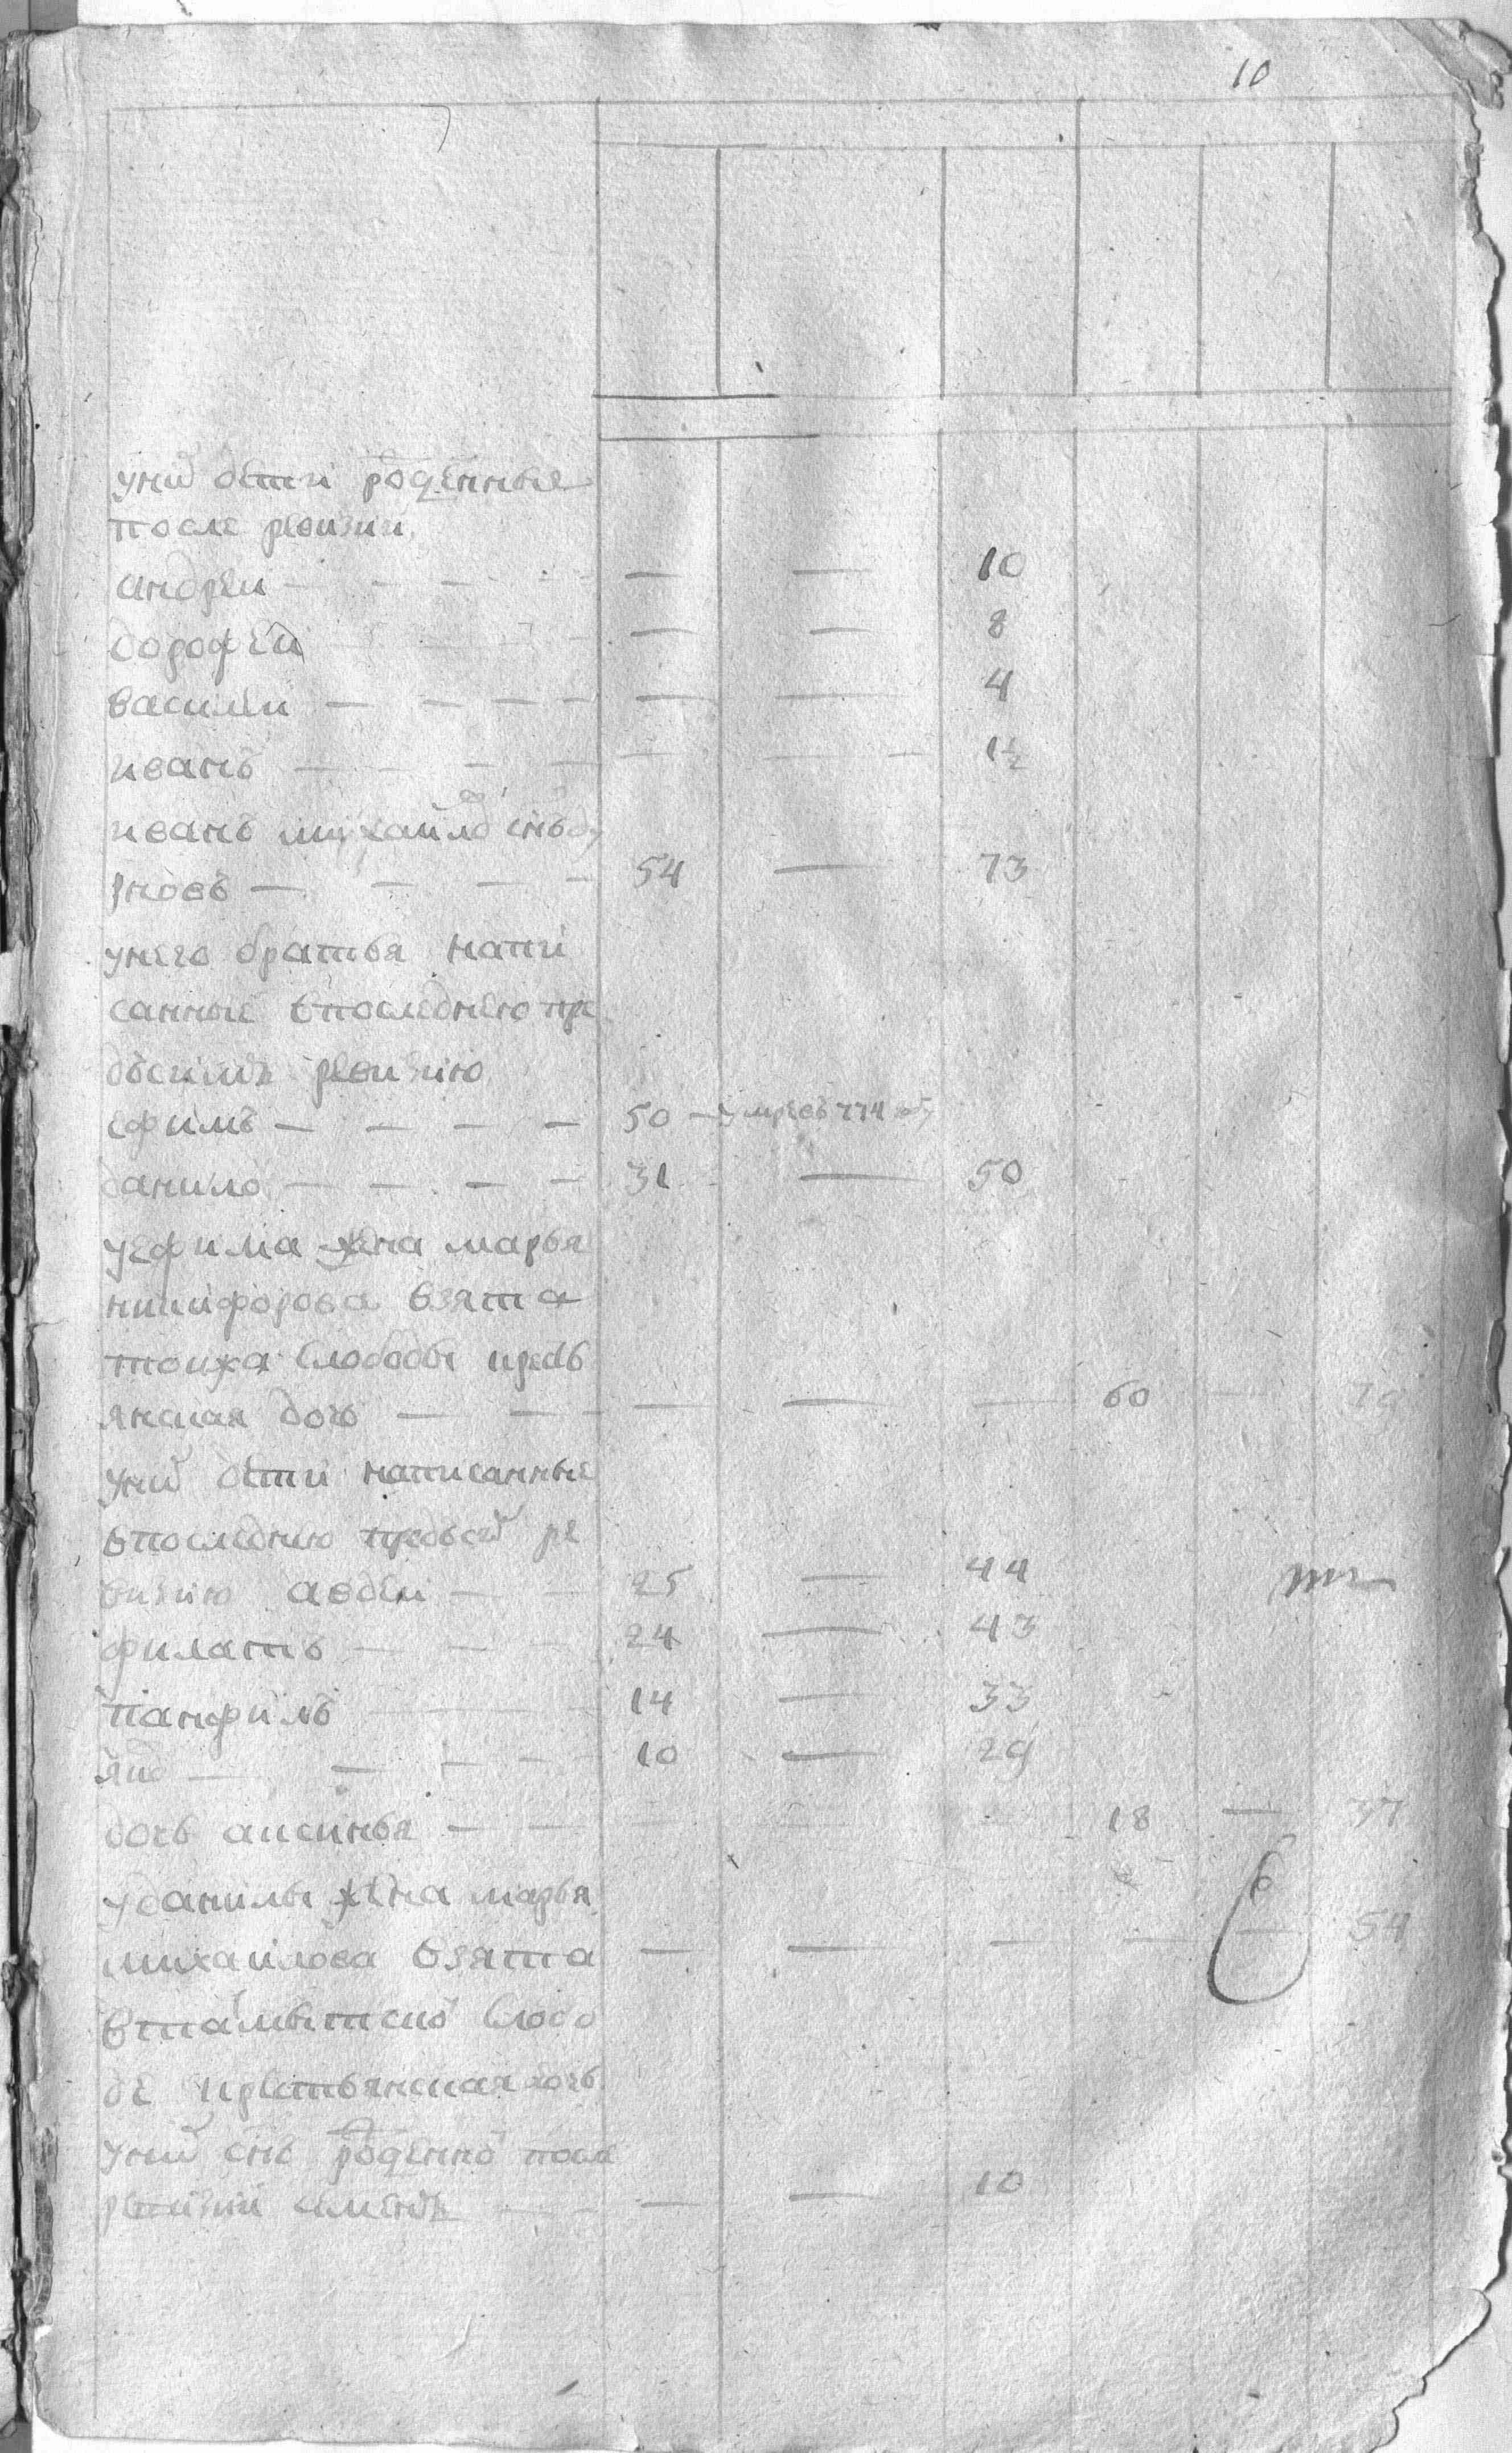 10
у них дети рожденные
после ревизии
андрей — — — — — — 10
дорофей — — 8
василей — — — — — — 4
иванъ — — — — — — 1½
иванъ михайловъ снъ
рновъ — — — — 54 — 73
у него братья напи
санные впоследнею пре
дъ симъ ревизию
ефимъ — — — — 50 — умре въ 774 году
данило — — — — 31 — 50
у ефима жена марья
никифорова взята
тоижа слободы кресть
янская дочь — — — — — 60 —
у них дети написанные
впоследнюю предъ сей ре
визию авдей — — 25 — 44
филатъ — — — 24 — 43
панфилъ — — 14 — 33
— — — — 10 — 29
дочь аксинья — — 18 — 37
у данилы жена марья
михайлова взята — — — — — 54
в слобо
де крестьянская дочь
у них снъ рожденной после
ревизии — — — — 10